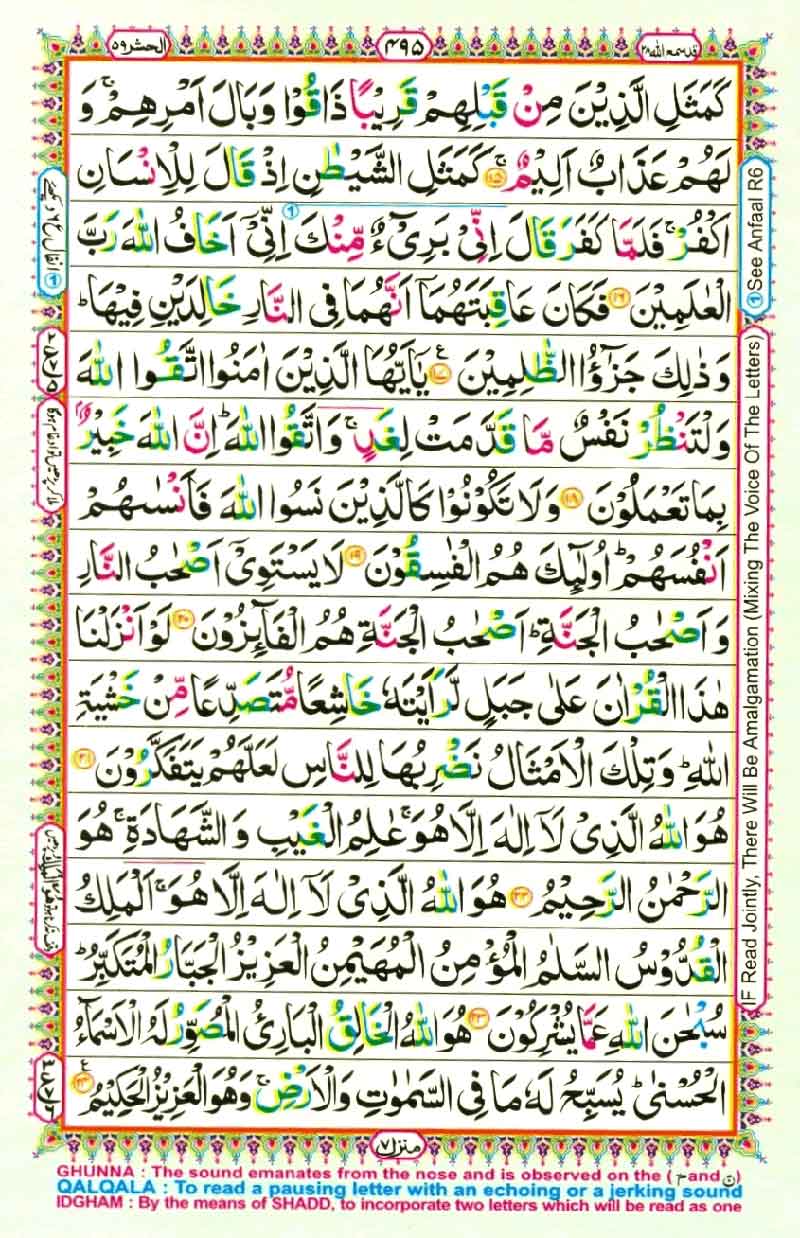 قد سمع الله ۲۸
۴۹۵
الحشر ۵۹
كَمَثَلِ الَّذِيْنَ مِنْ قَبْلِهِمْ قَرِيْبًا ذَاقُوْا وَبَالَ اَمْرِهِمْ ۚ وَ
لَهُمْ عَذَابٌ اَلِيْمٌ ۚ ﴿۱۵﴾ كَمَثَلِ الشَّيْطٰنِ اِذْ قَالَ لِلْاِنْسَانِ
اكْفُرْ ۚ فَلَمَّا كَفَرَ قَالَ اِنِّيْ بَرِيْٓءٌ مِّنْكَ اِنِّيْٓ اَخَافُ اللّٰهَ رَبَّ
الْعٰلَمِيْنَ ﴿۱۶﴾ فَكَانَ عَاقِبَتَهُمَآ اَنَّهُمَا فِي النَّارِ خَالِدَيْنِ فِيْهَا ؕ
وَذٰلِكَ جَزٰٓؤُا الظّٰلِمِيْنَ ﴿۱۷﴾ يٰٓاَيُّهَا الَّذِيْنَ اٰمَنُوا اتَّقُوا اللّٰهَ
وَلْتَنْظُرْ نَفْسٌ مَّا قَدَّمَتْ لِغَدٍ ۚ وَاتَّقُوا اللّٰهَ ؕ اِنَّ اللّٰهَ خَبِيْرٌۢ
بِمَا تَعْمَلُوْنَ ﴿۱۸﴾ وَلَا تَكُوْنُوْا كَالَّذِيْنَ نَسُوا اللّٰهَ فَاَنْسٰىهُمْ
اَنْفُسَهُمْ ؕ اُولٰٓئِكَ هُمُ الْفٰسِقُوْنَ ﴿۱۹﴾ لَا يَسْتَوِيْٓ اَصْحٰبُ النَّارِ
وَاَصْحٰبُ الْجَنَّةِ ؕ اَصْحٰبُ الْجَنَّةِ هُمُ الْفَآئِزُوْنَ ﴿۲۰﴾ لَوْ اَنْزَلْنَا
هٰذَا الْقُرْاٰنَ عَلٰى جَبَلٍ لَّرَاَيْتَهٗ خَاشِعًا مُّتَصَدِّعًا مِّنْ خَشْيَةِ
اللّٰهِ ؕ وَتِلْكَ الْاَمْثَالُ نَضْرِبُهَا لِلنَّاسِ لَعَلَّهُمْ يَتَفَكَّرُوْنَ ﴿۲۱﴾
هُوَ اللّٰهُ الَّذِيْ لَآ اِلٰهَ اِلَّا هُوَ ۚ عٰلِمُ الْغَيْبِ وَالشَّهَادَةِ ۚ هُوَ
الرَّحْمٰنُ الرَّحِيْمُ ﴿۲۲﴾ هُوَ اللّٰهُ الَّذِيْ لَآ اِلٰهَ اِلَّا هُوَ ۚ اَلْمَلِكُ
الْقُدُّوْسُ السَّلٰمُ الْمُؤْمِنُ الْمُهَيْمِنُ الْعَزِيْزُ الْجَبَّارُ الْمُتَكَبِّرُ ؕ
سُبْحٰنَ اللّٰهِ عَمَّا يُشْرِكُوْنَ ﴿۲۳﴾ هُوَ اللّٰهُ الْخَالِقُ الْبَارِئُ الْمُصَوِّرُ لَهُ الْاَسْمَآءُ
الْحُسْنٰى ؕ يُسَبِّحُ لَهٗ مَا فِي السَّمٰوٰتِ وَالْاَرْضِ ۚ وَهُوَ الْعَزِيْزُ الْحَكِيْمُ ﴿۲۴﴾
منزل ۷
① See Anfaal R6
IF Read Jointly, There Will Be Amalgamation (Mixing The Voice Of The Letters)
GHUNNA : The sound emanates from the nose and is observed on the (م and ن)
QALQALA : To read a pausing letter with an echoing or a jerking sound
IDGHAM : By the means of SHADD, to incorporate two letters which will be read as one